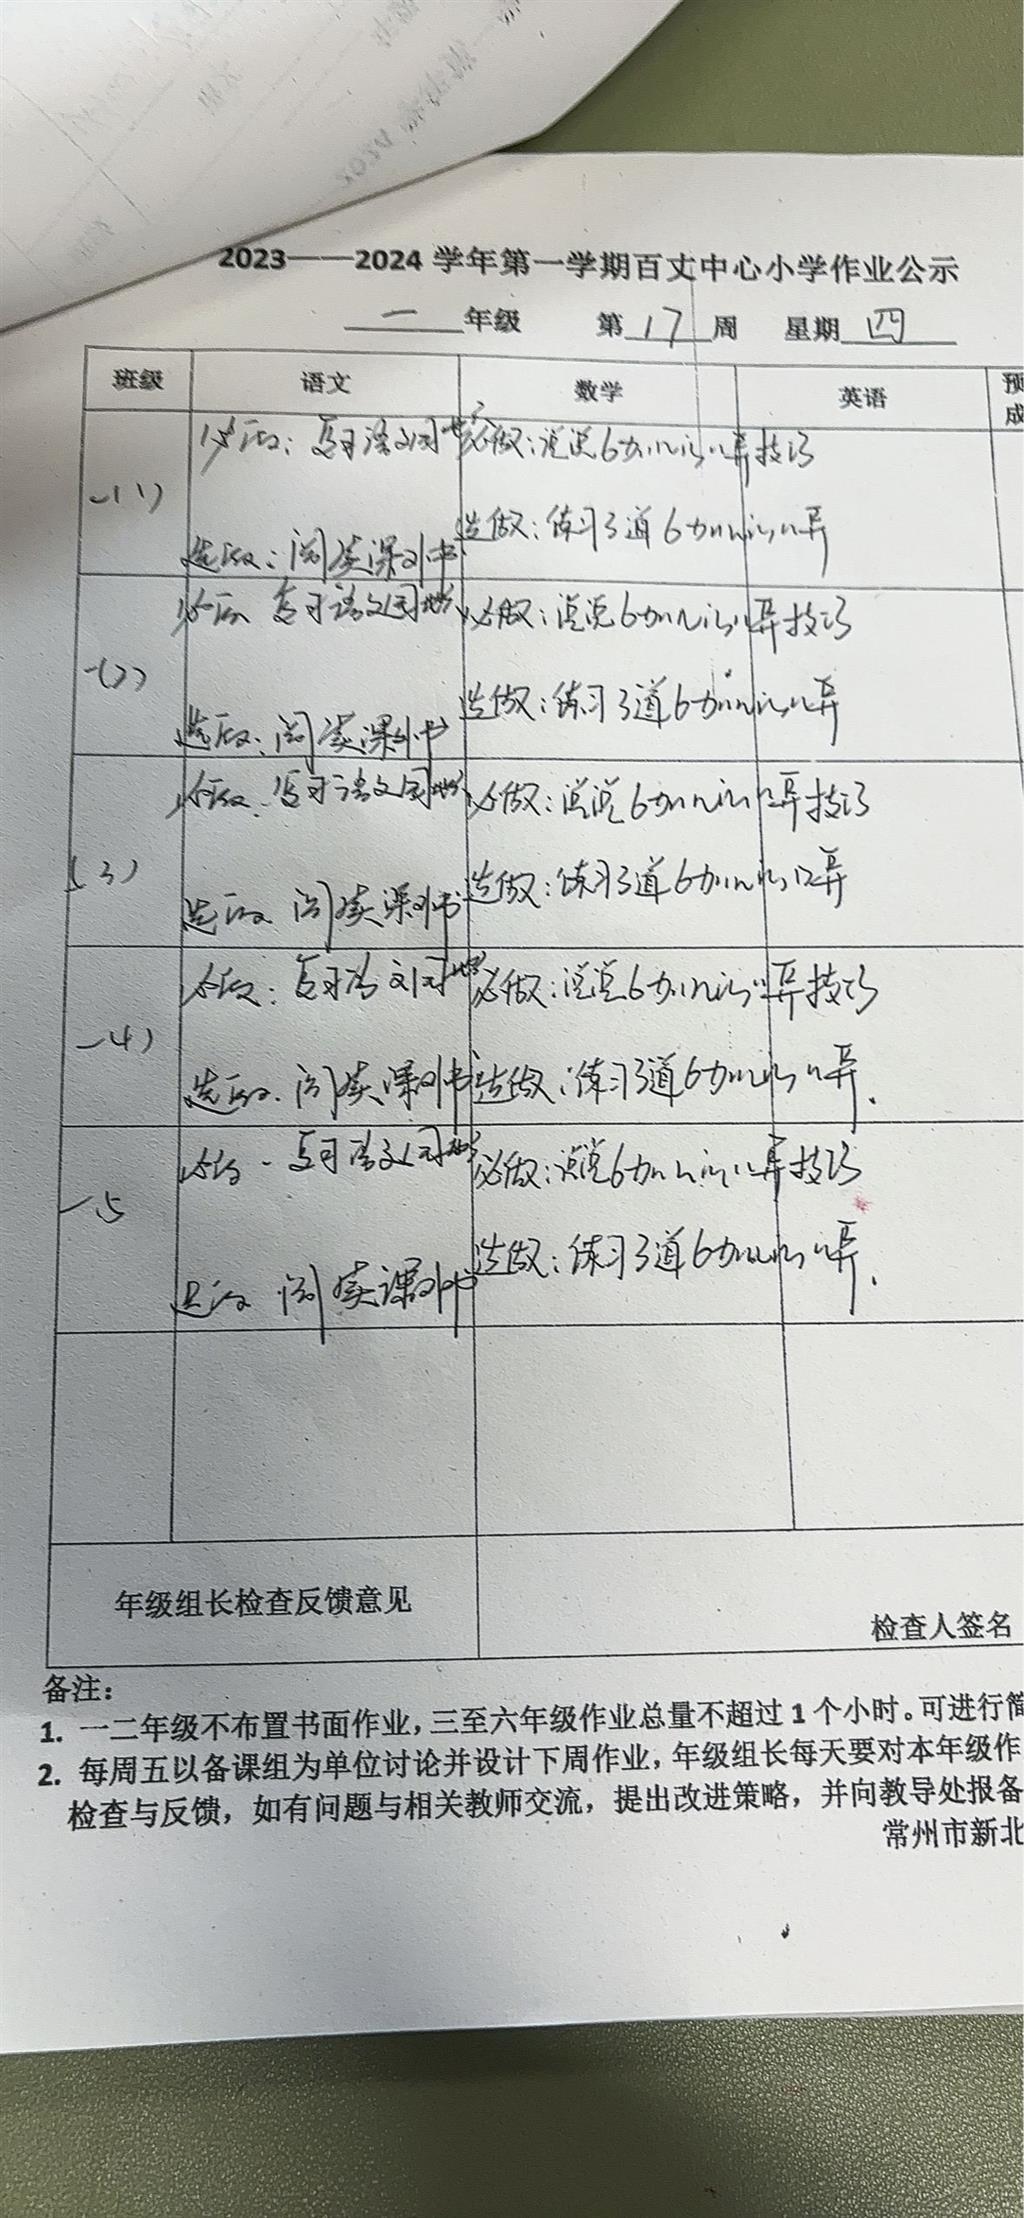 2023——2024 学年第一学期百丈中心小学作业公示
一 年级 第 17 周 星期 四
班级 语文 数学 英语 预
成
一(1) 必做：复习语文园地 必做：说说6加几的计算技巧
选做：阅读课外书 选做：练习3道6加几的计算
一(2) 必做：复习语文园地 必做：说说6加几的计算技巧
选做：阅读课外书 选做：练习3道6加几的计算
(3) 必做：复习语文园地 必做：说说6加几的计算技巧
选做：阅读课外书 选做：练习3道6加几的计算
一(4) 必做：复习语文园地 必做：说说6加几的计算技巧
选做：阅读课外书 选做：练习3道6加几的计算.
一5 必做：复习语文园地 必做：说说6加几的计算技巧
选做 阅读课外书 选做：练习3道6加几的计算.
年级组长检查反馈意见
检查人签名
备注：
1. 一二年级不布置书面作业，三至六年级作业总量不超过 1 个小时。可进行简
2. 每周五以备课组为单位讨论并设计下周作业，年级组长每天要对本年级作
检查与反馈，如有问题与相关教师交流，提出改进策略，并向教导处报备
常州市新北